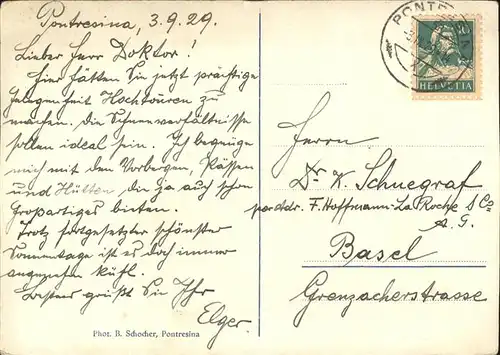 Pontresina, 3.9.29.
Lieber Herr Doktor!
Hier hätten Sie jetzt prächtige
Gelegenheit Hochtouren zu
machen. Die Schneeverhältnisse
sollen ideal sein. Ich begnüge
mich mit den Vorbergen, Pässen
und Hütten die ja auch schon
Großartiges bieten.
Trotz fortgesetzter schönster
Sonnentage ist es doch immer
angenehm kühl.
Bestens grüßt Sie Ihr
Elger.
Phot. B. Schocher, Pontresina
PONTRESINA
10
HELVETIA
Herrn
Dr. K. Schnegraf
p. addr. F. Hoffmann-La Roche & Co
A. G.
Basel
Grenzacherstrasse